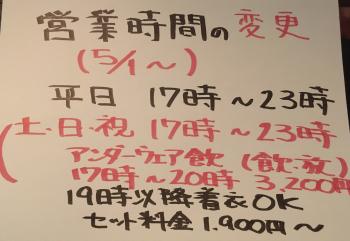 営業時間の変更
(5/1～)
平日 17時～23時
土・日・祝 17時～23時
アンダーウェア飲(飲・放)
17時～20時 3,200円
19時以降着衣OK
セット料金1.900円～